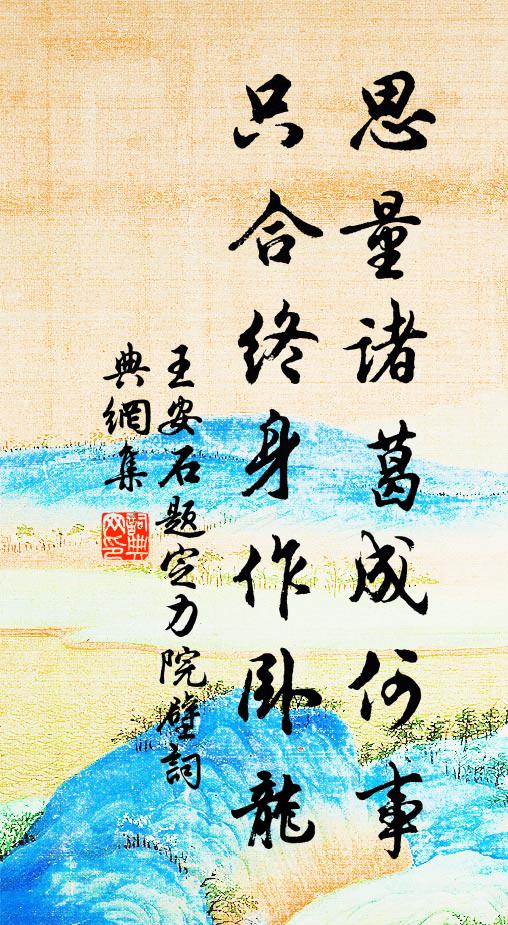 思量諸葛成何事
只合終身作臥龍
王安石題定力院壁詞
典網集
詞典網印